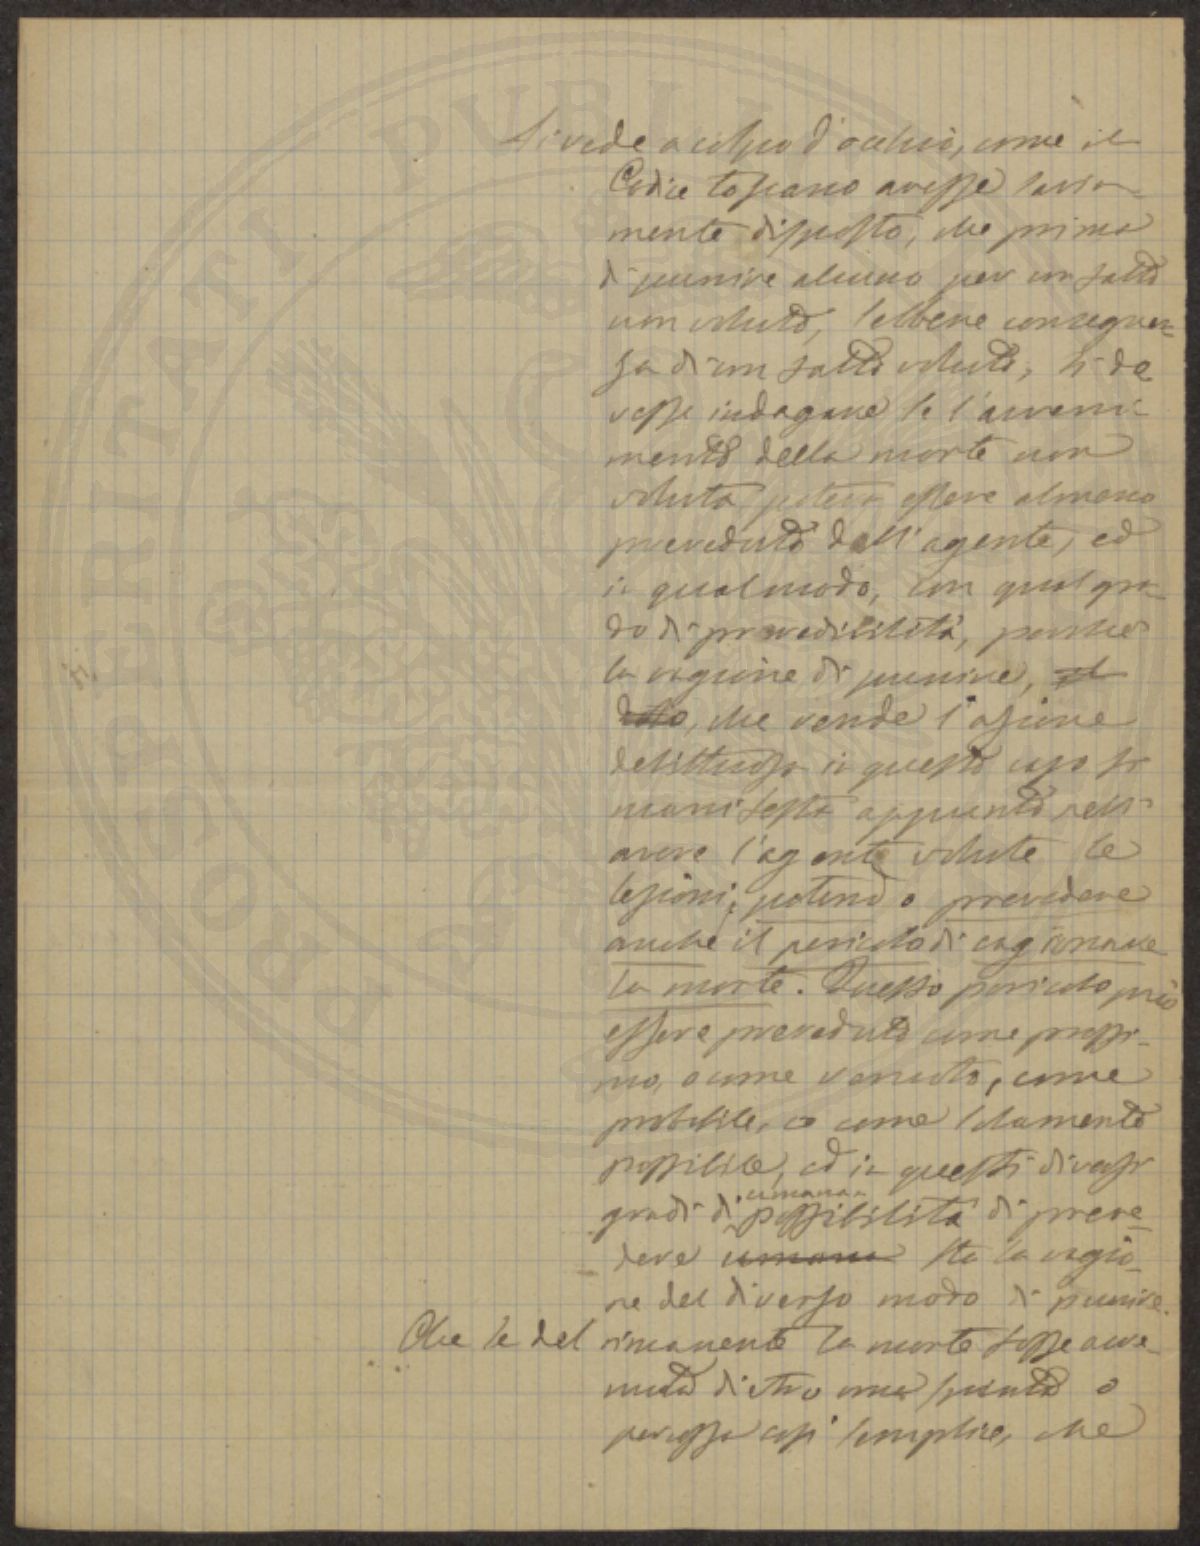 Si vede a colpo d'occhio, come il
Codice toscano avesse savia-
mente disposto, che prima
di punire alcuno per un fatto
non voluto, sebbene conseguen-
za di un fatto voluto, si do
vesse indagare se l'avveni-
mento della morte non
voluta poteva essere almeno
preveduto dall'agente, ed
in qual modo, con qual gra-
do di prevedibilità, perchè
la ragione di punire, il
dolo, che rende l'azione
delittuosa in questo caso si
manifesta appunto nell'
avere l'agente volute le
lesioni, potendo prevedere
anche il pericolo di cagionare
la morte. Questo pericolo può
essere preveduto come prossi-
mo, o come remoto, come
probabile, o come solamente
possibile, ed in questi diversi
umana
gradi di possibilità di preve-
dere umana sta la ragio-
ne del diverso modo di punire.
Che se del rimanente la morte fosse avve-
nuta dietro una spinta o
percossa così semplice, che
PROSPERITATI PUBLI